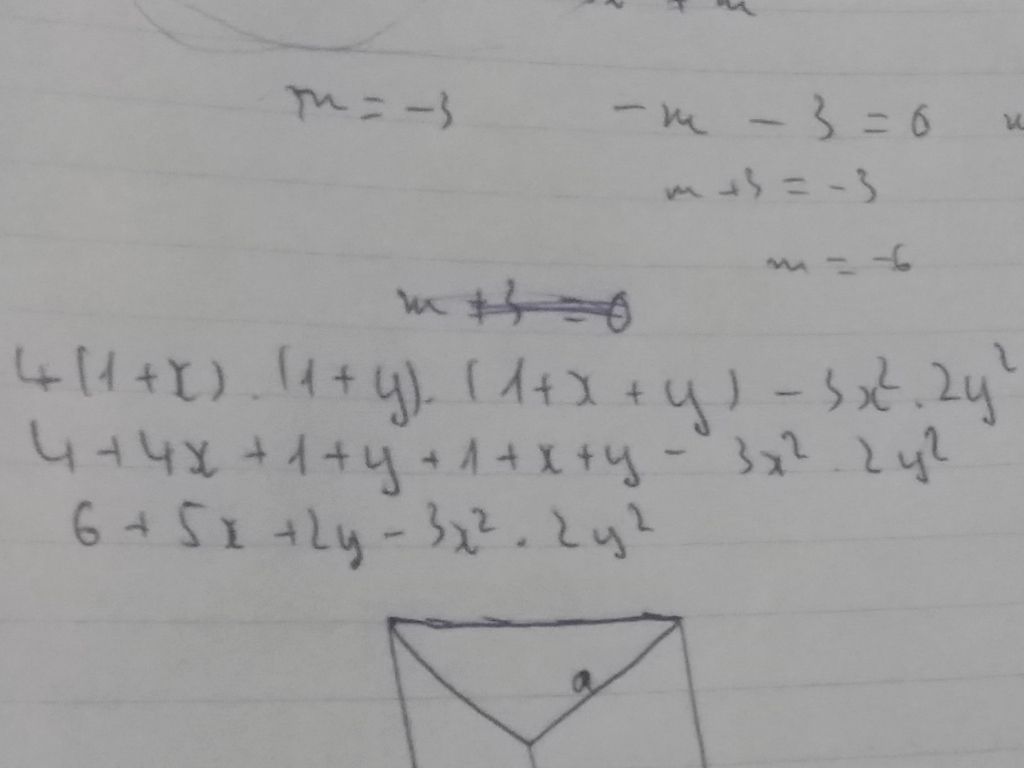 m = -3   -m - 3 = 0
m + 3 = -3
m = -6
m + 3 = 0
4(1+x) . (1+y) . (1+x+y) - 3x² . 2y²
4 + 4x + 1 + y + 1 + x + y - 3x² . 2y²
6 + 5x + 2y - 3x² . 2y²
a